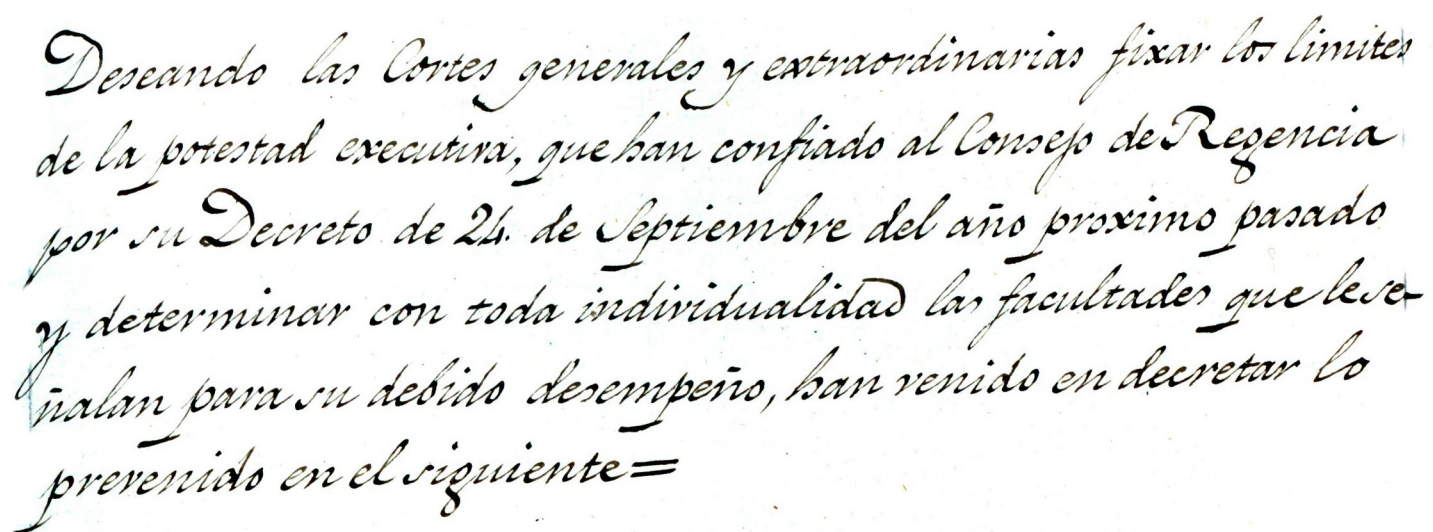 Deseando las Cortes generales y extraordinarias fixar los limites
de la potestad executiva, que han confiado al Consejo de Regencia
por su Decreto de 24. de Septiembre del año proximo pasado
y determinar con toda individualidad las facultades que le se-
ñalan para su debido desempeño, han venido en decretar lo
prevenido en el siguiente=